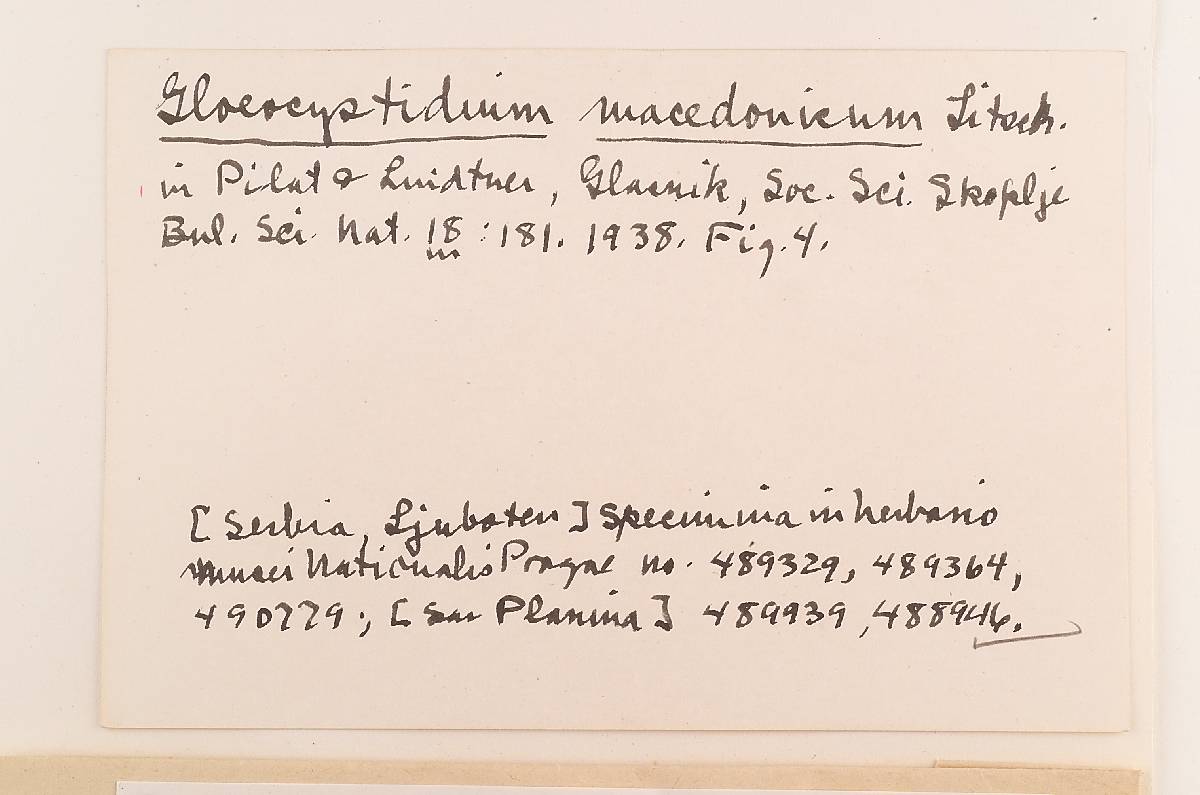 Gloeocystidium macedonicum Litsch.
in Pilat & Lindtner, Glasnik, Soc. Sci. Skoplje
Bul. Sci. Nat. 18 : 181. 1938. Fig. 4.
[Serbia, Ljuboten] Specimina in herbario
musei Nationalis Pragae no. 489329, 489364,
490779 ; [Sar Planina] 489939, 488946.